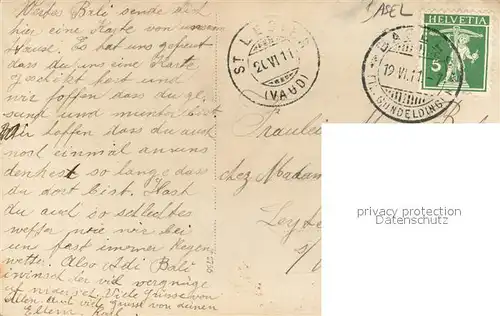 Wertes Bali sende dich
hier eine Karte von unsern
Hause. Es hat uns gefreut
dass du uns eine Karte
geschikt hest und
wir hoffen dass du ge-
sund und munter bist.
Wir hoffen dass du auch
nost einmal an uns
denkest so lange dass
du dort bist. Hast
du auch so schlechtes
wetter wie wir bei
uns fast immer Regen
wetter. Also Adi Bali
winsch der vil vergnüge
Viele Grüsse von
Allen. Auch viele Grüsse von deinen
Eltern, Karl
ST LEGIER
20.VI.11
(VAUD)
BASEL
BASEL
19.VI.11
GUNDELDING
HELVETIA
5
Fräulein
chez Madam
privacy protection
Datenschutz